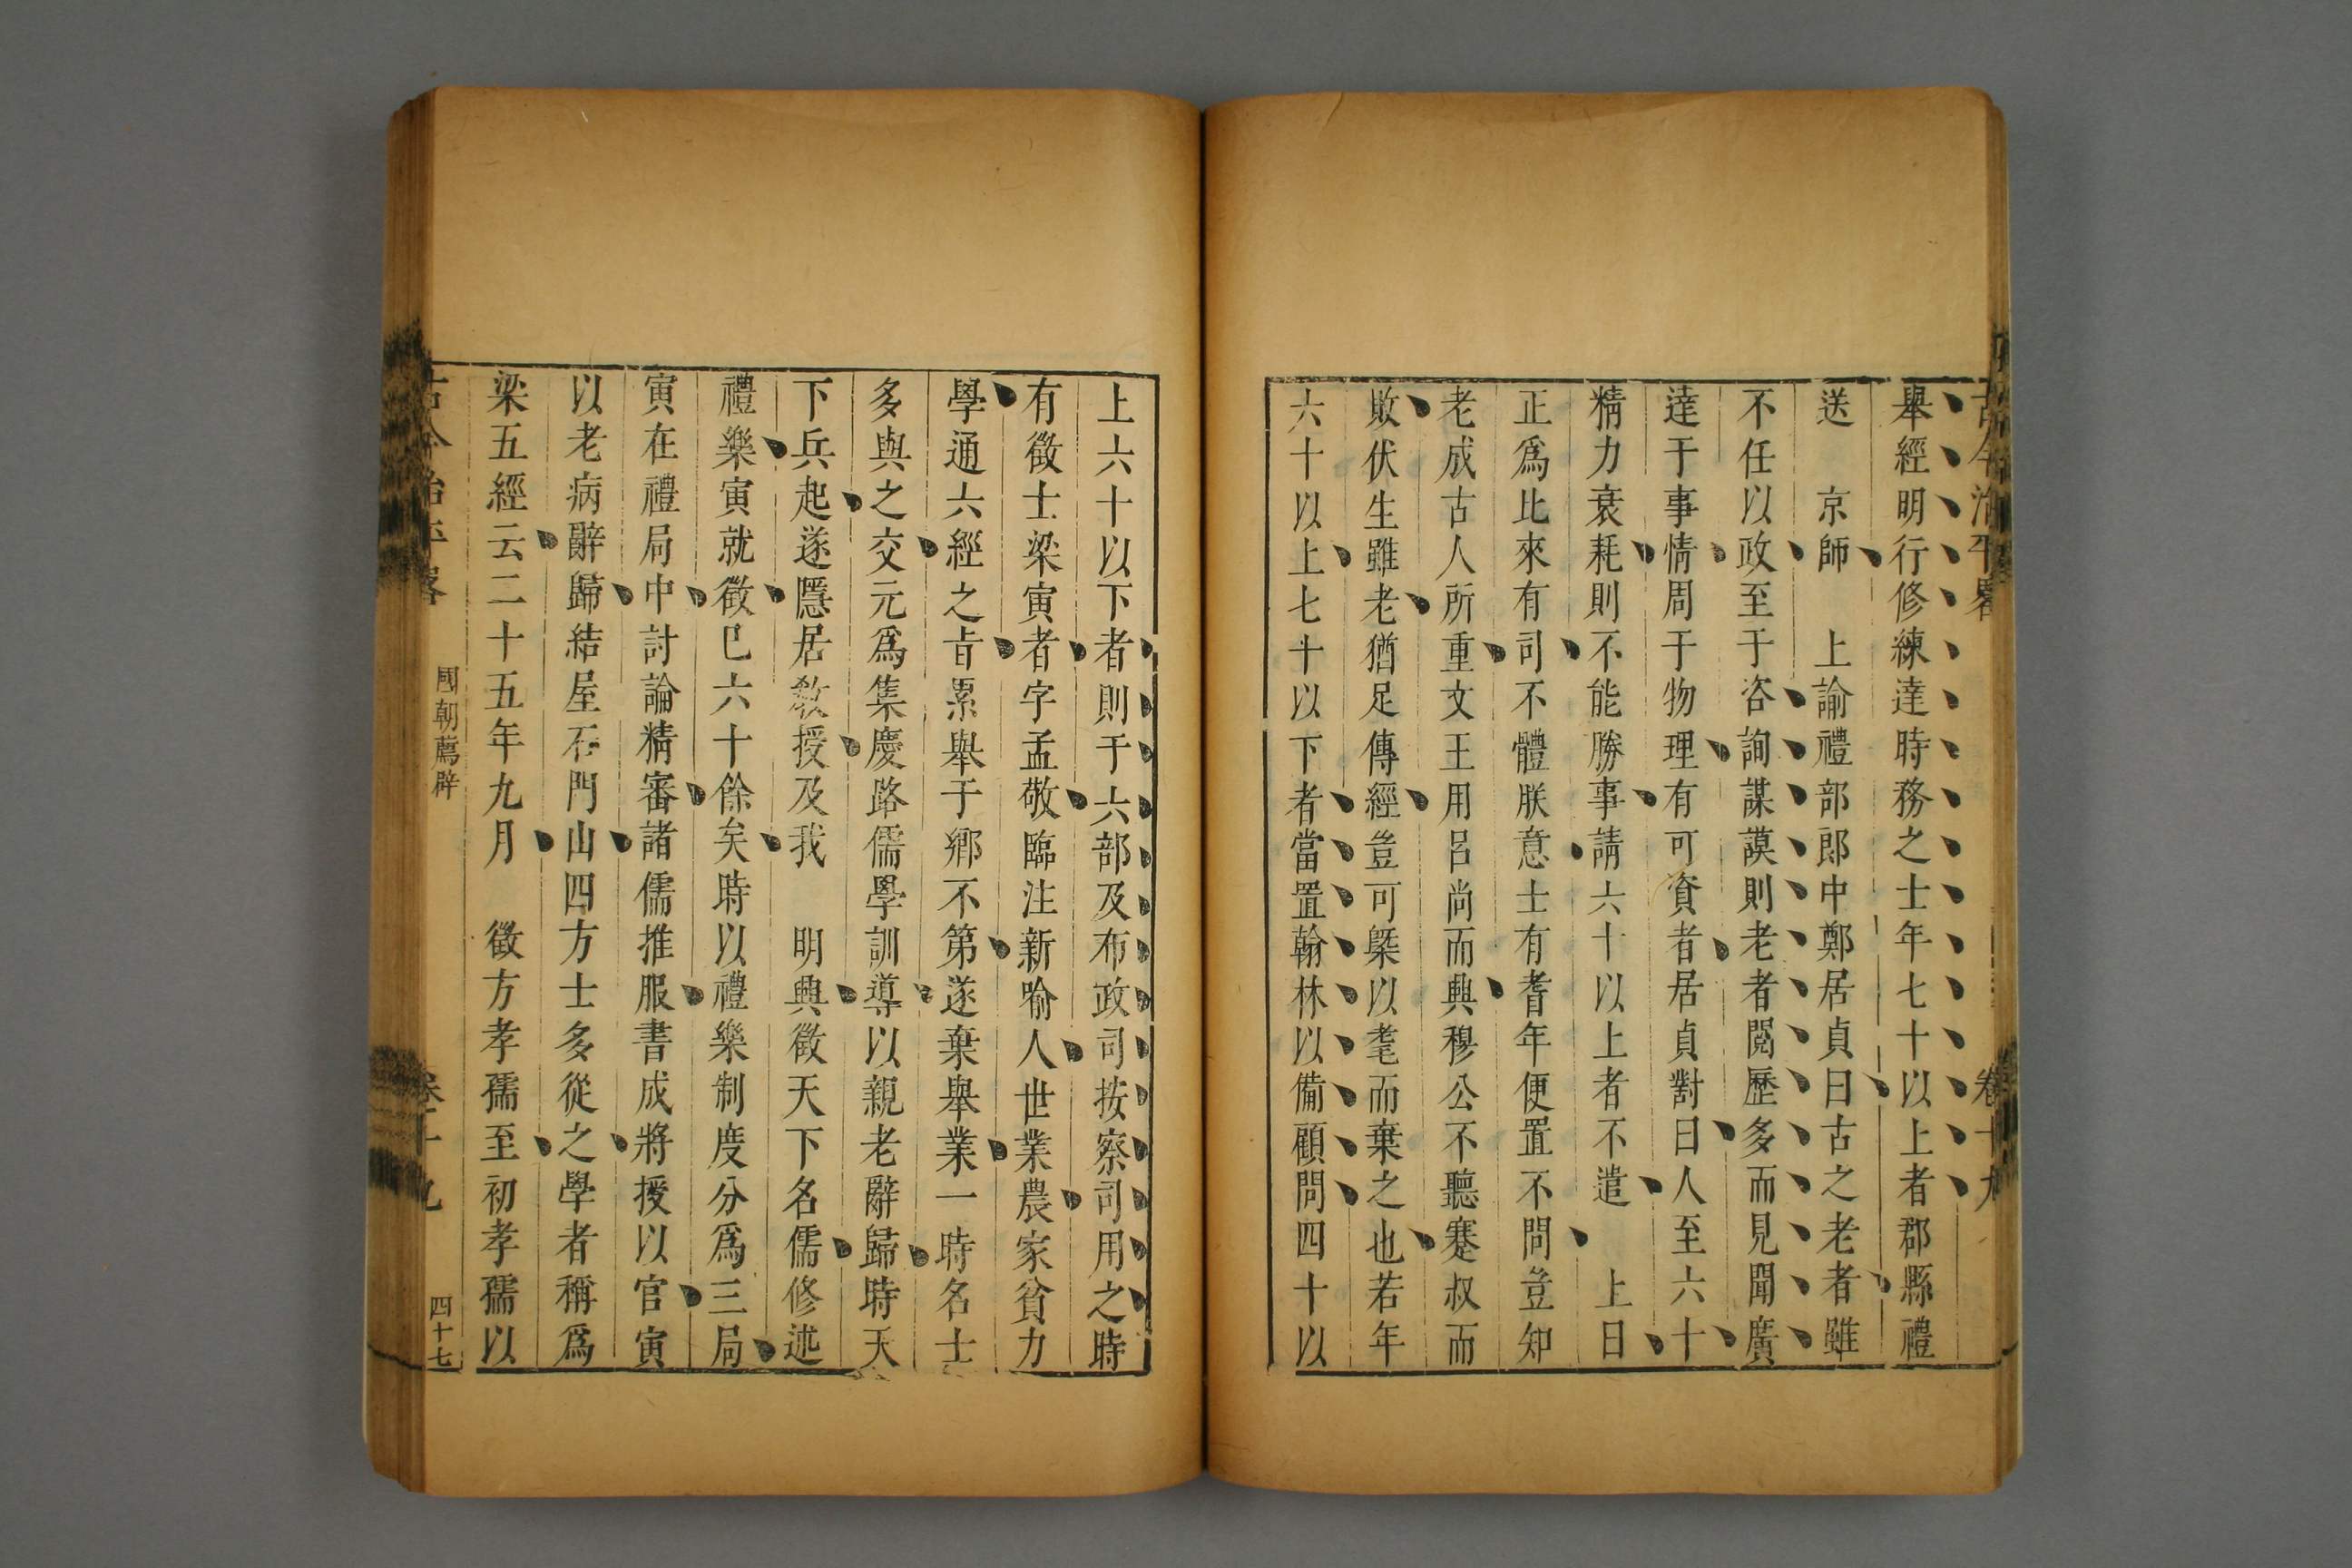 古今治平畧 卷十九
舉經明行修練達時務之士年七十以上者郡縣禮
送 京師 上諭禮部郎中鄭居貞曰古之老者雖
不任以政至于咨詢謀謨則老者閱歷多而見聞廣
達于事情周于物理有可資者居貞對曰人至六十
精力衰耗則不能勝事請六十以上者不遣 上曰
正爲比來有司不體朕意士有耆年便置不問豈知
老成古人所重文王用呂尚而興穆公不聽蹇叔而
敗伏生雖老猶足傳經豈可槩以耄而棄之也若年
六十以上七十以下者當置翰林以備顧問四十以
上六十以下者則于六部及布政司按察司用之時
有徵士梁寅者字孟敬臨江新喻人世業農家貧力
學通六經之旨累舉于鄉不第遂棄舉業一時名士
多與之交元爲集慶路儒學訓導以親老辭歸時天
下兵起遂隱居教授及我 明興徵天下名儒修述
禮樂寅就徵已六十餘矣時以禮樂制度分爲三局
寅在禮局中討論精審諸儒推服書成將授以官寅
以老病辭歸結屋石門山四方士多從之學者稱爲
梁五經云二十五年九月 徵方孝孺至初孝孺以
古今治平畧 國朝薦辟 卷十九 四十七